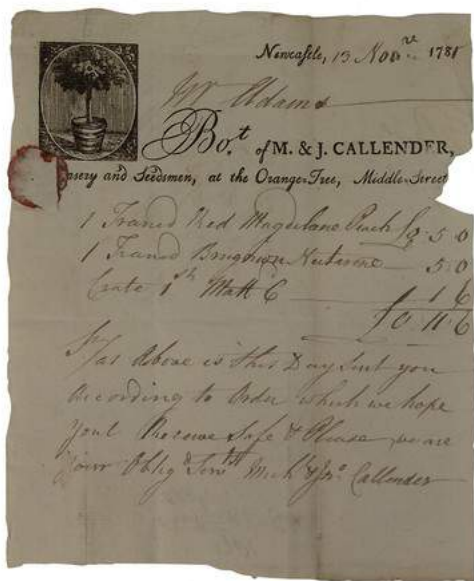 Newcastle, 13 Novr. 1781
Mr Adams
Bot. of M. & J. CALLENDER,
ursery and Seedsmen, at the Orange-Tree, Middle-Street
1 Traned Red Magdelane Peach £0.5.0
1 Traned Brugnon Necterine 5.0
Crate 1sh Matt 6 1 6
£0 11.6
Sr/as Above is this Day Sent you
According to Order which we hope
youl Receive Safe & Please we are
your Oblig'd Servts Mich & Jno Callender